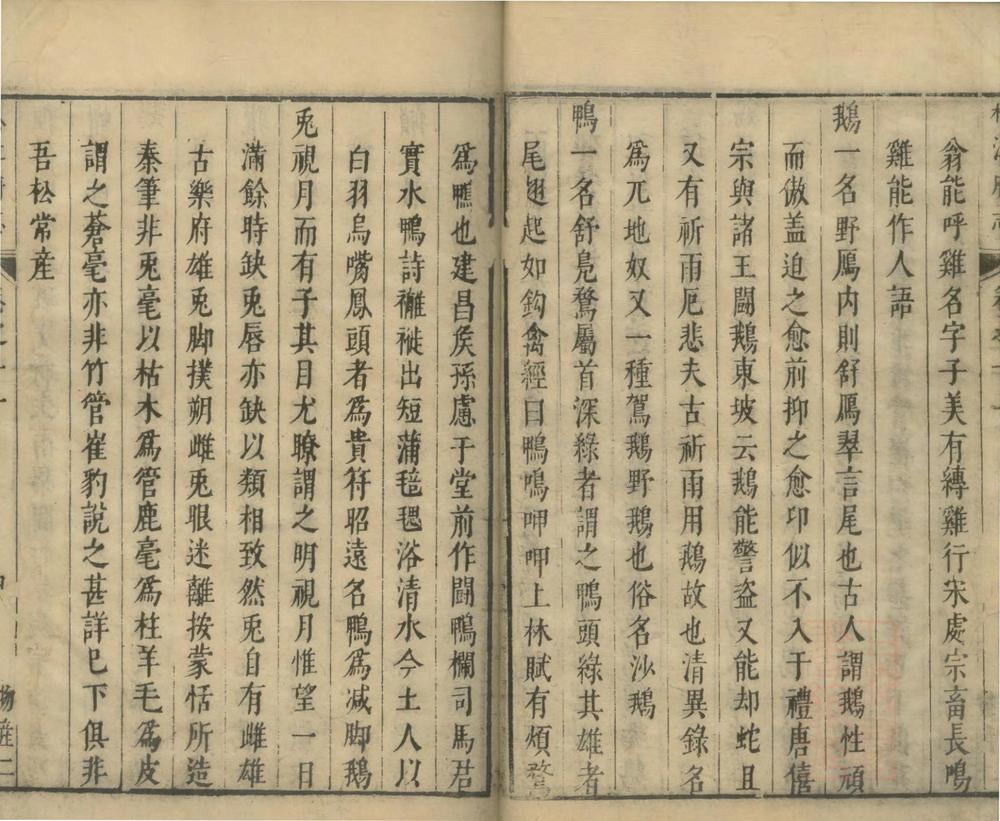 翁能呼雞名字子美有縳雞行宋處宗畜長鳴
雞能作人語
鵝一名野鴈内則舒鴈翠言尾也古人謂鵝性頑
而傲盖迫之愈前抑之愈卬似不入于禮唐僖
宗與諸王鬪鵝東坡云鵝能警盗又能却蛇且
又有祈雨厄悲夫古祈雨用鵝故也清異錄名
爲兀地奴又一種駕鵝野鵝也俗名沙鵝
鴨一名舒鳧鶩屬首深綠者謂之鴨頭綠其雄者
尾翅起如鈎禽經曰鴨鳴呷呷上林賦有煩鶩
爲鴨也建昌矦孫慮于堂前作鬪鴨欄司馬君
實水鴨詩襳褷出短蒲毰毸浴清水今土人以
白羽烏嘴鳳頭者爲貴符昭遠名鴨爲减脚鵝
兎視月而有子其目尤瞭謂之明視月惟望一日
滿餘時缺兎唇亦缺以類相致然兎自有雌雄
古樂府雄兎脚撲朔雌兎眼迷離按蒙恬所造
秦筆非兎毫以枯木爲管鹿毫爲柱羊毛爲皮
謂之蒼毫亦非竹管崔豹說之甚詳已下俱非
吾松常産
物産二